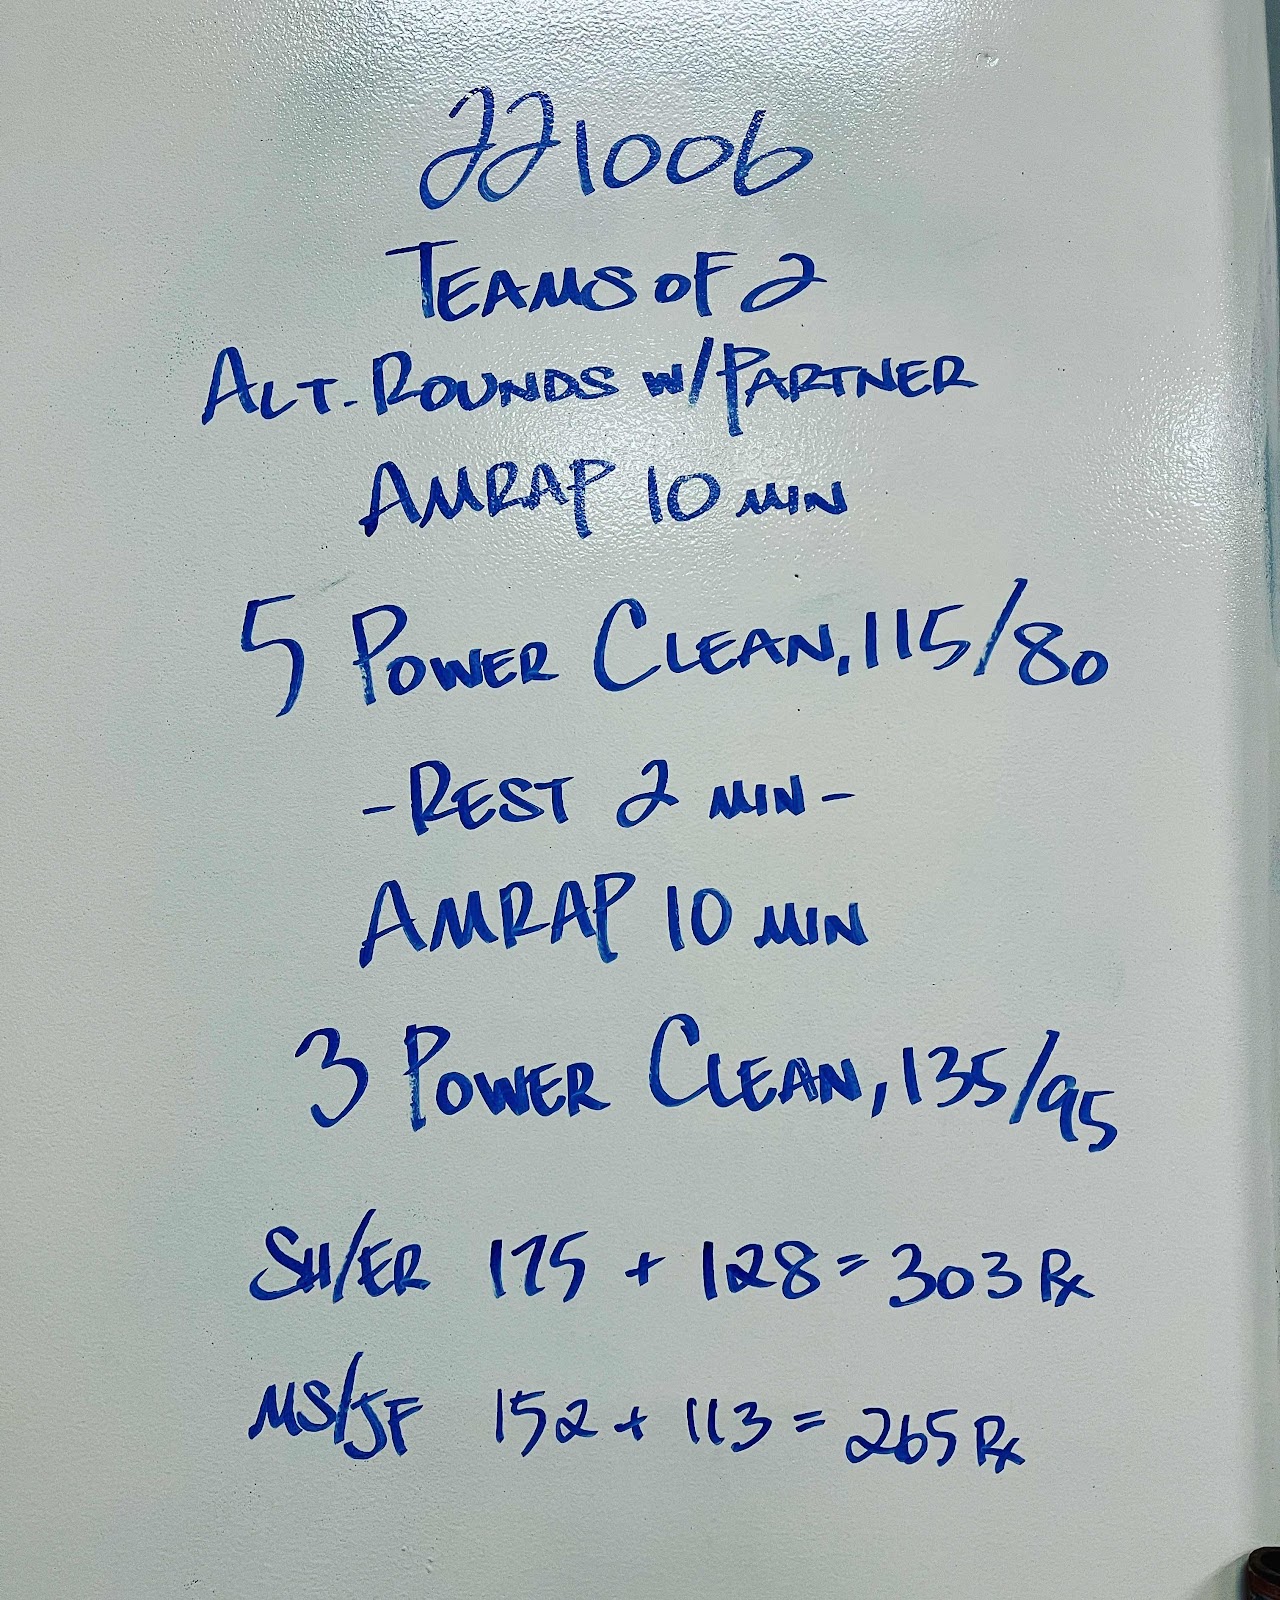 221006
TEAMS OF 2
ALT. ROUNDS W/PARTNER
AMRAP 10 MIN
5 POWER CLEAN, 115/80
-REST 2 MIN-
AMRAP 10 MIN
3 POWER CLEAN, 135/95
SH/ER 175 + 128 = 303 Rx
MS/JF 152 + 113 = 265 Rx